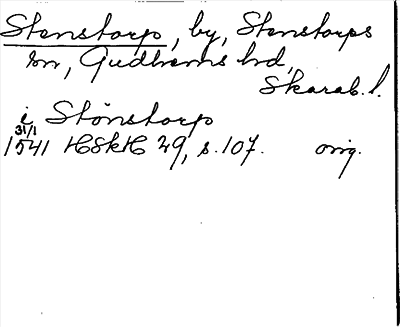 Stenstorp, by, Stenstorps
sn, Gudhems hd,
Skarab. l.
i Stönstorp
31/1
1541 HSkH 29, s. 107. orig.